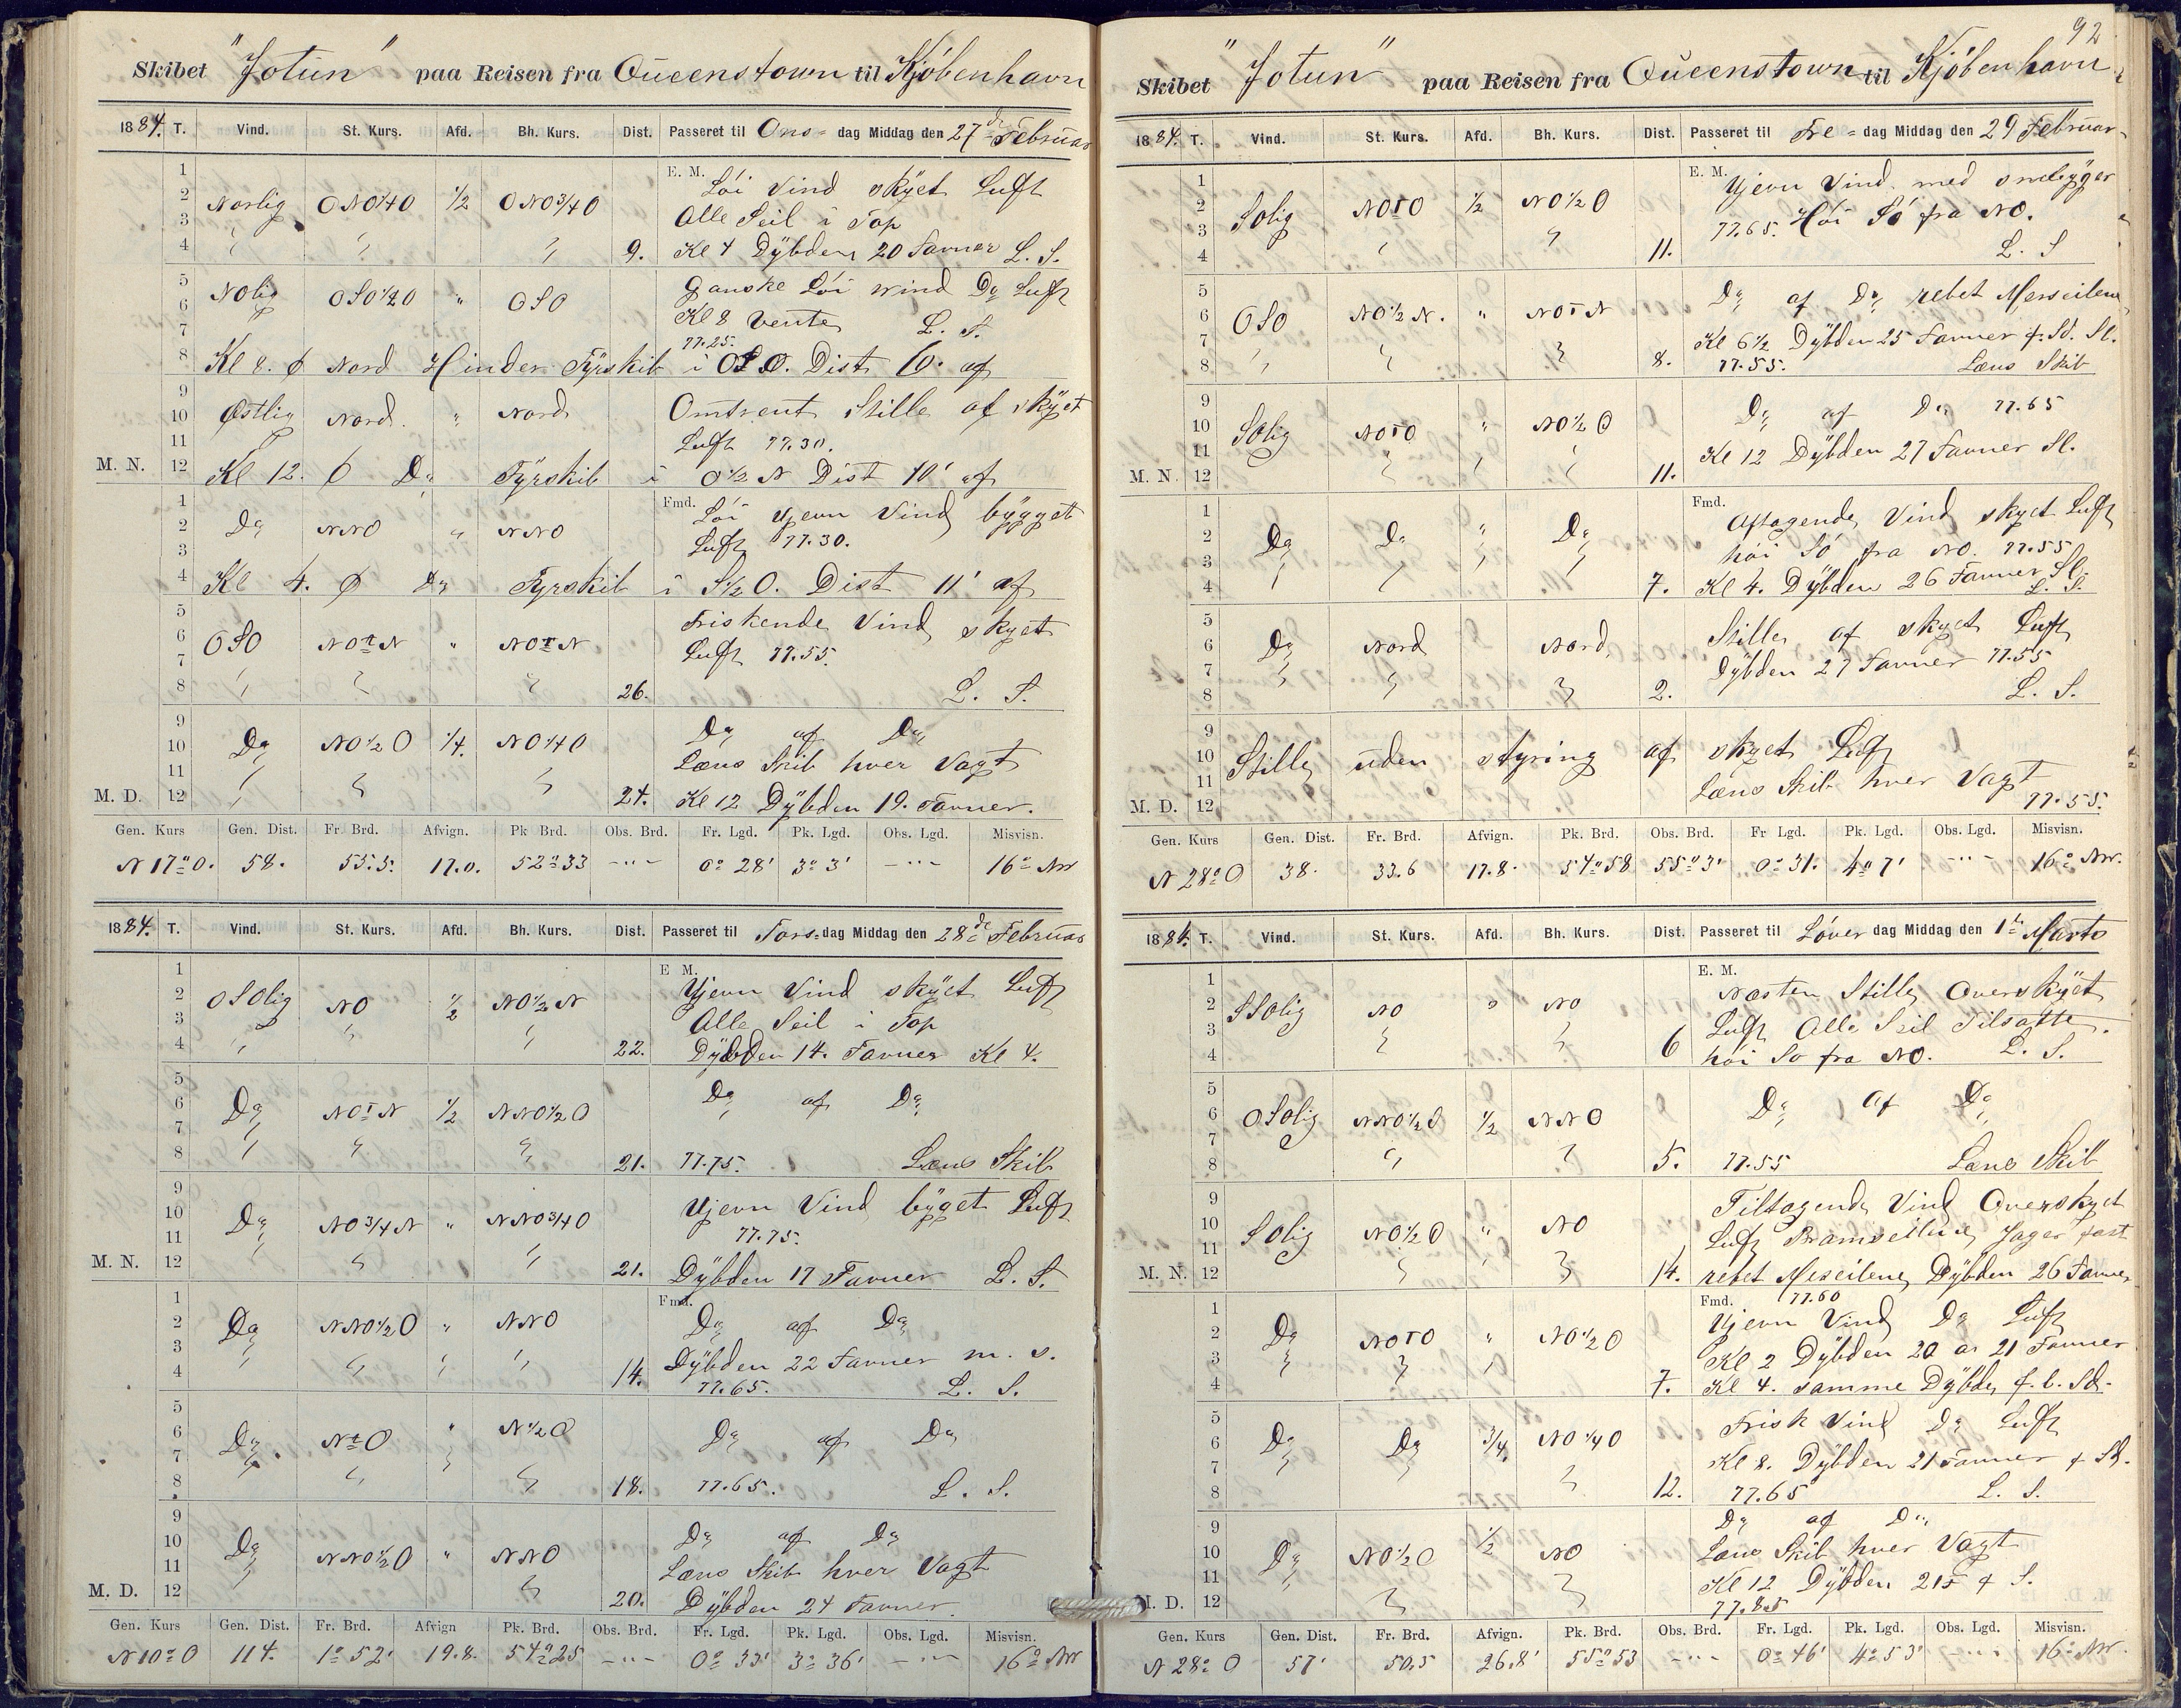 Skibet "Jotun" paa Reisen fra Queenstown til Kjöbenhavn
1884. T. Vind. St. Kurs. Afd. Bh. Kurs. Dist. Passeret til Ons=dag Middag den 27de Februar
1 E. M. Löi Vind skÿet Luft
2 Norlig ONO1/4O 1/2 ONO3/4O
3 Alle Seil i Top
4 " " " 9. Kl 4 Dÿbden 20 Favner L. S.
5 Ganske Löi wind Do Luft
6 NOlig OSO1/2O " OSO Kl 8 Vente L. S.
7 77.25.
8 Kl 8. Nord Hinder Fÿrskib i OSO. Dist 6' af
9
10 Østlig Nord. " Nord Omtrent Stille af skÿet
11 Luft 77.30.
M. N. 12 Kl 12. Do Fÿrskib i O1/2 N Dist 10' af
1 Fmd. Löi Ujevn Vind bÿgget
2 Do NNO " NNO Luft 77.30.
3
4 Kl 4. Do Fyrskib i S1/2O. Dist 11' af
5 Friskende Vind skyet
6 OSO NOtN " NOtN Luft 77.55.
7
8 " " " 26. L. S.
9 Do af Do
10 Do NO1/2O 1/4. NO1/4O
11 Læns Skib hver Vagt
M. D. 12 " " " 24. Kl 12 Dÿbden 19. Favner.
Gen. Kurs Gen. Dist. Fr. Brd. Afvign. Pk Brd. Obs. Brd. Fr. Lgd. Pk. Lgd. Obs. Lgd. Misvisn.
N 17° O. 58. 55.5. 17.0. 52° 33 -"- 0° 28' 3° 3' -"- 16° NW
1884. T. Vind. St. Kurs. Afd. Bh. Kurs. Dist. Passeret til Tors=dag Middag den 28de Februar
1 E M. Ujevn Vind skÿet Luft
2 OSOlig NO 1/2 NO1/2N
3 Alle Seil i Top
4 " " " 22. Dÿbden 14. Favner Kl 4.
5
6 Do NOtN 1/2 NNO1/2O Do af Do
7
8 " " " 21. 77.75. Læns Skib
9 Ujevn Vind bÿget Luft
10 Do NO3/4N " NNO3/4O
11 77.75.
M. N. 12 " " 21. Dÿbden 17 Favner L. S.
1 Fmd. Do af Do
2 Do NNO1/2O " NNO
3 Dÿbden 22 Favner m. s.
4 " " " 14. 77.65. L. S.
5
6 Do NtO " N1/2O Do af Do
7
8 " " " 18. 77.65. L. S.
9 Do af Do
10 Do NNO1/2O " NNO
11 Læns Skib hver Vagt
M. D. 12 " 20. Dÿbden 24 Favner.
Gen. Kurs Gen. Dist. Fr. Brd. Afvign Pk. Brd. Obs. Brd. Fr. Lgd. Pk. Lgd. Obs. Lgd. Misvisn.
N 10° O 114. 1° 52' 19.8. 54° 25 -"- 0° 33' 3° 36' -"- 16° NW
92
Skibet "Jotun" paa Reisen fra Queenstown til Kjöbenhavn
1884. T. Vind. St. Kurs. Afd. Bh. Kurs. Dist. Passeret til Fre=dag Middag den 29 Februar
1 E. M. Ujevn Vind med snebÿger
2 SOlig NOtO 1/2 NO1/2O
3 77.65. Höi Sö fra NO.
4 " " 11. L. S
5 Do af Do rebet Merseilene
6 OSO NO1/2N. " NOtN
7 Kl 6 1/2 Dÿbden 25 Favner f. Sd. Sl.
8 " " " 8. 77.55. Læns Skib
9 Do af Do 77.65
10 SOlig NOtO " NO1/2O
11 Kl 12 Dÿbden 27 Favner Sl.
M. N. 12 " " " 11.
1 Fmd. Aftagende Vind skyet Luft
2 Do Do " Do
3 höi Sö fra NO. 77.55
4 " " " " 7. Kl 4. Dÿbden 26 Favner Sl. L. S.
5 Stille af skyet Luft
6 Do Nord Nord
7 Dÿbden 27 Favner 77.55
8 " " " 2. L. S.
9
10 Stille uden styring af skyet Luft
11 Læns Skib hver Vagt
M. D. 12 77.55.
Gen. Kurs Gen. Dist. Fr. Brd. Afvign. Pk. Brd. Obs. Brd. Fr Lgd. Pk. Lgd. Obs. Lgd. Misvisn.
N 28° O 38. 33.6 17.8. 54° 58 55° 3' 0° 31. 4° 7' -"- 16° NW.
1884. T. Vind. St. Kurs. Afd. Bh. Kurs. Dist. Passeret til Löver dag Middag den 1te Marts
1 E. M. Næsten Stille Overskÿet
2 SSOlig NO " NO
3 Luft Alle Seil Tilsatte.
4 " " 6 höi Sö fra NO. L. S.
5
6 OSOlig NNO1/2O 1/2 NNO Do af Do
7
8 " " 5. 77.55 Læns Skib
9 Tiltagende Vind Overskyet
10 SOlig NO1/2O " NO
11 Luft Bramseilene Jager fast
M. N. 12 " " 14. rebet Meseilene Dÿbden 26 Favner
1 Fmd. 77.60 Ujevn Vind Do Luft
2 Do NOtO " NO1/2O
3 Kl 2 Dÿbden 20 a 21 Favner
4 " " " 7. Kl 4. samme Dÿbde f. b. Sd.
5 Frisk Vind Do Luft
6 Do Do 3/4. NO1/4O
7 Kl 8. Dÿbden 21 Favner f Sd.
8 " " " 12. 77.65 L. S.
9 Do af Do
10 Do NO1/2O 1/2 NO Læns Skib hver Vagt
11 Kl 12 Dÿbden 21 f S.
M. D. 12 " " 77.85
Gen. Kurs Gen. Dist. Fr. Brd. Afvign. Pk. Brd. Obs. Brd. Fr. Lgd. Pk. Lgd. Obs. Lgd. Misvisn.
N 28° O 57' 50,5 26.8' 55° 53 -"- 0° 46' 4° 53' -"- 16° NW.